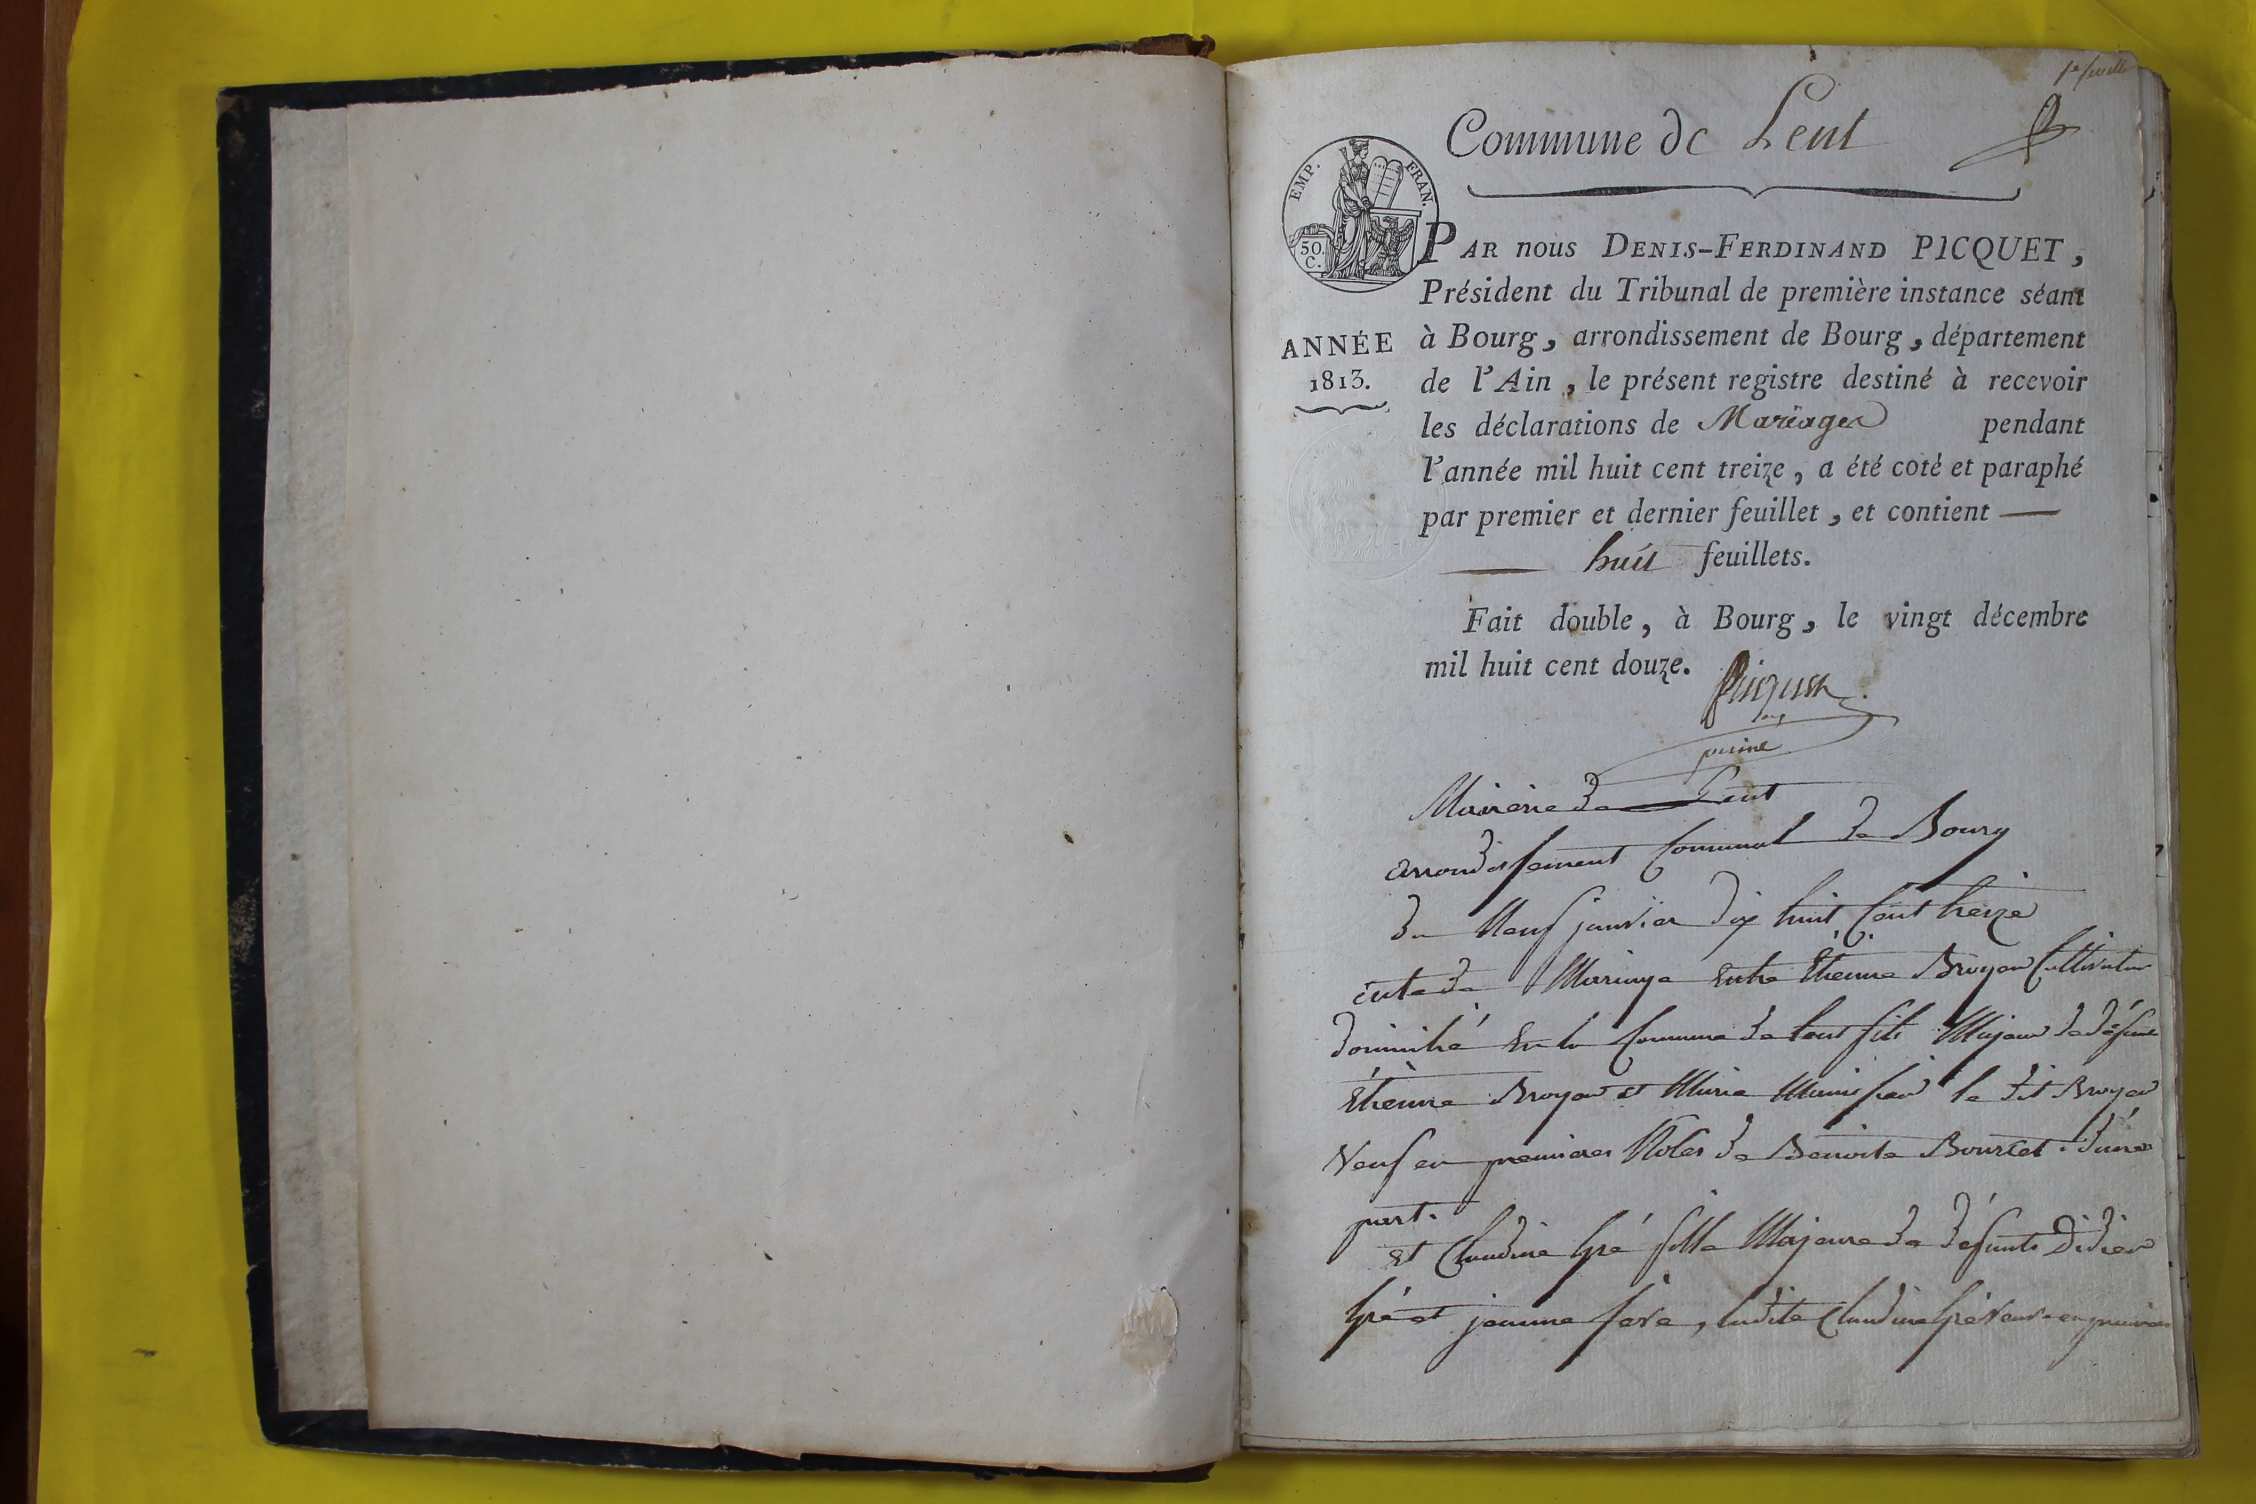 1er feuillet
Commune de Lent
EMP. FRAN.
50 C.
PAR nous DENIS-FERDINAND PICQUET,
Président du Tribunal de première instance séant
à Bourg, arrondissement de Bourg, département
de l'Ain, le présent registre destiné à recevoir
les déclarations de Mariages pendant
l'année mil huit cent treize, a été coté et paraphé
par premier et dernier feuillet, et contient —
— huit feuillets.
ANNÉE
1813.
Fait double, à Bourg, le vingt décembre
mil huit cent douze.
Picquet
Mairerie de Lent
arrondissement Communal de Bourg
du Neuf janvier dix huit Cent treize
acte de Mariage entre Étienne Broyer Cultivateur
domicilié en la Commune de Lent fils Majeur de défunt
Étienne Broyer et Marie le dit Broyer
Veuf en premieres Noces de Benoite Bourcet d'une
part.
et Claudine Gré fille Majeure de défunts Didier
Gré et jeanne fere, ladite Claudine Gré veuve en premieres